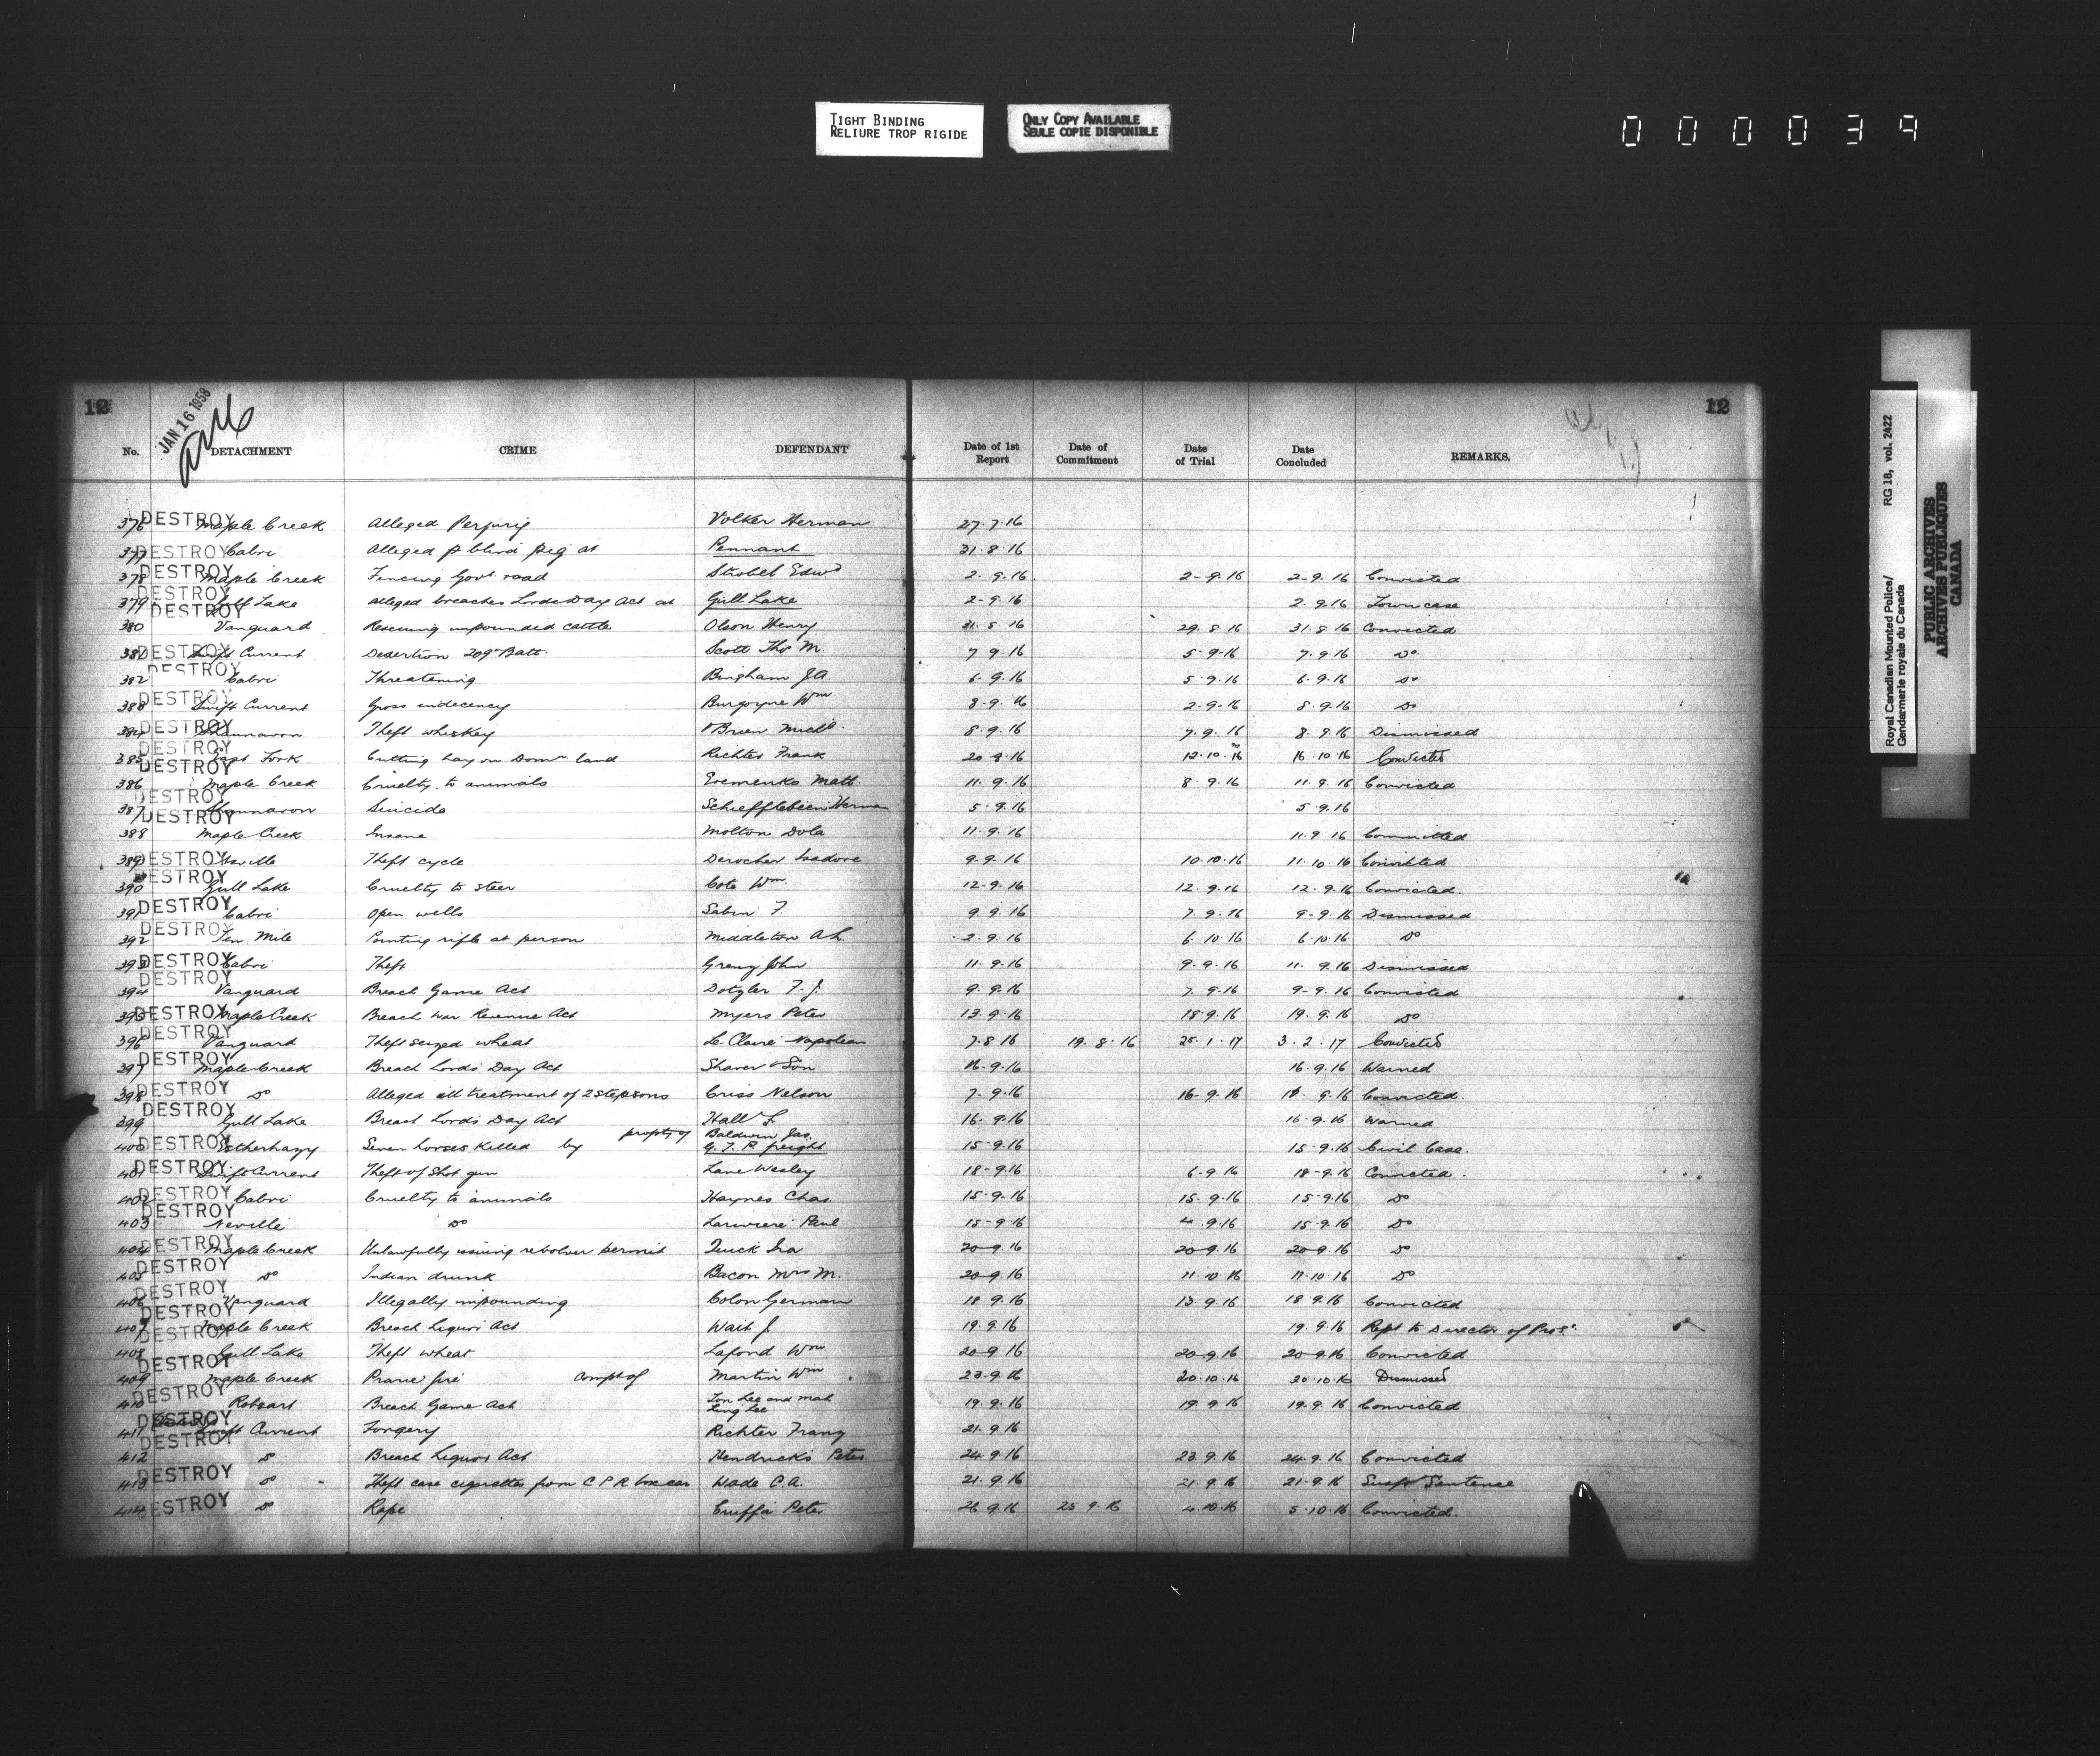 TIGHT BINDING
RELIURE TROP RIGIDE
ONLY COPY AVAILABLE
SEULE COPIE DISPONIBLE
000039
12 JAN 16 1958 12
No. DETACHMENT CRIME DEFENDANT Date of 1st Report Date of Commitment Date of Trial Date Concluded REMARKS.
376 DESTROY Maple Creek Alleged Perjury Volker Herman 27.7.16
377 DESTROY Cabri Alleged blind pig at Pennant 31.8.16
378 DESTROY Maple Creek Fencing Govt road Strobel Edwd 2.9.16 2-9.16 2-9.16 Convicted
379 DESTROY Gull Lake Alleged breaches Lords Day Act at Gull Lake 2-9.16 2.9.16 Town case
380 DESTROY Vanguard Rescuing impounded cattle Olson Henry 31.8.16 29.8.16 31.8.16 Convicted
381 DESTROY Swift Current Desertion 209th Batt. Scott Thos M. 7 9.16 5-9-16 7.9.16 Do
382 DESTROY Cabri Threatening Bingham J.A. 6-9.16 5.9.16 6.9.16 Do
383 DESTROY Swift Current Gross indecency Burgoyne Wm 8-9.16 2-9-16 8.9.16 Do
384 DESTROY Shaunavon Theft whiskey O'Brien Michl. 8.9.16 7.9.16 8.9.16 Dismissed
385 DESTROY East Fork Cutting hay on Domn land Richter Frank 20 9.16 12.10.16 16.10.16 Convicted
386 DESTROY Maple Creek Cruelty to animals Eremenko Matt. 11.9.16 8.9.16 11.9.16 Convicted
387 DESTROY Shaunavon Suicide Schieffelbein Herman 5-9.16 5.9.16
388 DESTROY Maple Creek Insane Molton Dola 11.9.16 11.9 16 Committed
389 DESTROY Neville Theft cycle Derocher Isadore 9.9.16 10.10.16 11.10.16 Convicted
390 DESTROY Gull Lake Cruelty to steer Cote Wm. 12.9.16 12.9.16 12.9.16 Convicted.
391 DESTROY Cabri Open wells Sabin F. 9.9.16 7.9.16 9-9.16 Dismissed
392 DESTROY Ten Mile Pointing rifle at person Middleton A.L. 2.9.16 6.10.16 6.10.16 Do
393 DESTROY Cabri Theft John 11.9.16 9.9.16 11.9.16 Dismissed
394 DESTROY Vanguard Breach Game Act F.J. 9.9.16 7.9.16 9-9.16 Convicted
395 DESTROY Maple Creek Breach War Revenue Act Myers Peter 13.9.16 18.9.16 19.9.16 Do
396 DESTROY Vanguard Theft seized wheat Le Claire Napolean 7.8 16 19.8.16 25.1.17 3.2.17 Convicted
397 DESTROY Maple Creek Breach Lords Day Act Shaver & Son 16.9.16 16.9.16 Warned
398 DESTROY Do Alleged ill treatment of 2 stepsons Criss Nelson 7-9.16 16-9.16 9.16 Convicted.
399 DESTROY Gull Lake Breach Lords Day Act Hall L. 16-9.16 16-9.16 Warned
400 DESTROY Esterhazy Seven horses killed by property of Baldwin Jas. G.T.P. freight 15-9.16 15-9.16 Civil Case.
401 DESTROY Swift Current Theft of Shot gun Lane Wesley 18-9.16 6-9.16 18-9.16 Convicted.
402 DESTROY Cabri Cruelty to animals Haynes Chas. 15-9.16 15.9.16 15-9.16 Do
403 DESTROY Neville Do Lariviere Paul 15-9.16 4.9.16 15.9.16 Do
404 DESTROY Maple Creek Unlawfully issuing revolver permit Quick Ira 20-9.16 20-9.16 20-9.16 Do
405 DESTROY Do Indian drunk Bacon Mrs M. 20-9.16 11.10.16 11.10.16 Do
406 DESTROY Vanguard Illegally impounding Colon German 18 9.16 13.9.16 18 9.16 Convicted
407 DESTROY Maple Creek Breach Liquor Act Wait J. 19.9.16 19.9.16 Rept to Director of Pros.
408 DESTROY Gull Lake Theft wheat Lafond Wm 20-9 16 20.9.16 20-9.16 Convicted
409 DESTROY Maple Creek Prarie fire compt of Martin Wm 23-9.16 20.10.16 20.10.16 Dismissed
410 DESTROY Robsart Breach Game Act Lon Lee and Mah Ling Lee 19.9.16 19 9 16 19.9.16 Convicted
411 DESTROY Swift Current Forgery Richter Franz 21.9.16
412 DESTROY Do Breach Liquor Act Hendricks Peter 24.9.16 23.9.16 24.9.16 Convicted
413 DESTROY Do Theft case cigarettes from C P R boxcar Wade C.A. 21.9.16 21.9.16 21-9.16 Suspd Sentence
414 DESTROY Do Rape Peter 26 9.16 25 9.16 4.10.16 5.10.16 Convicted.
Royal Canadian Mounted Police/ RG 18, vol. 2422
Gendarmerie royale du Canada
PUBLIC ARCHIVES
ARCHIVES PUBLIQUES
CANADA